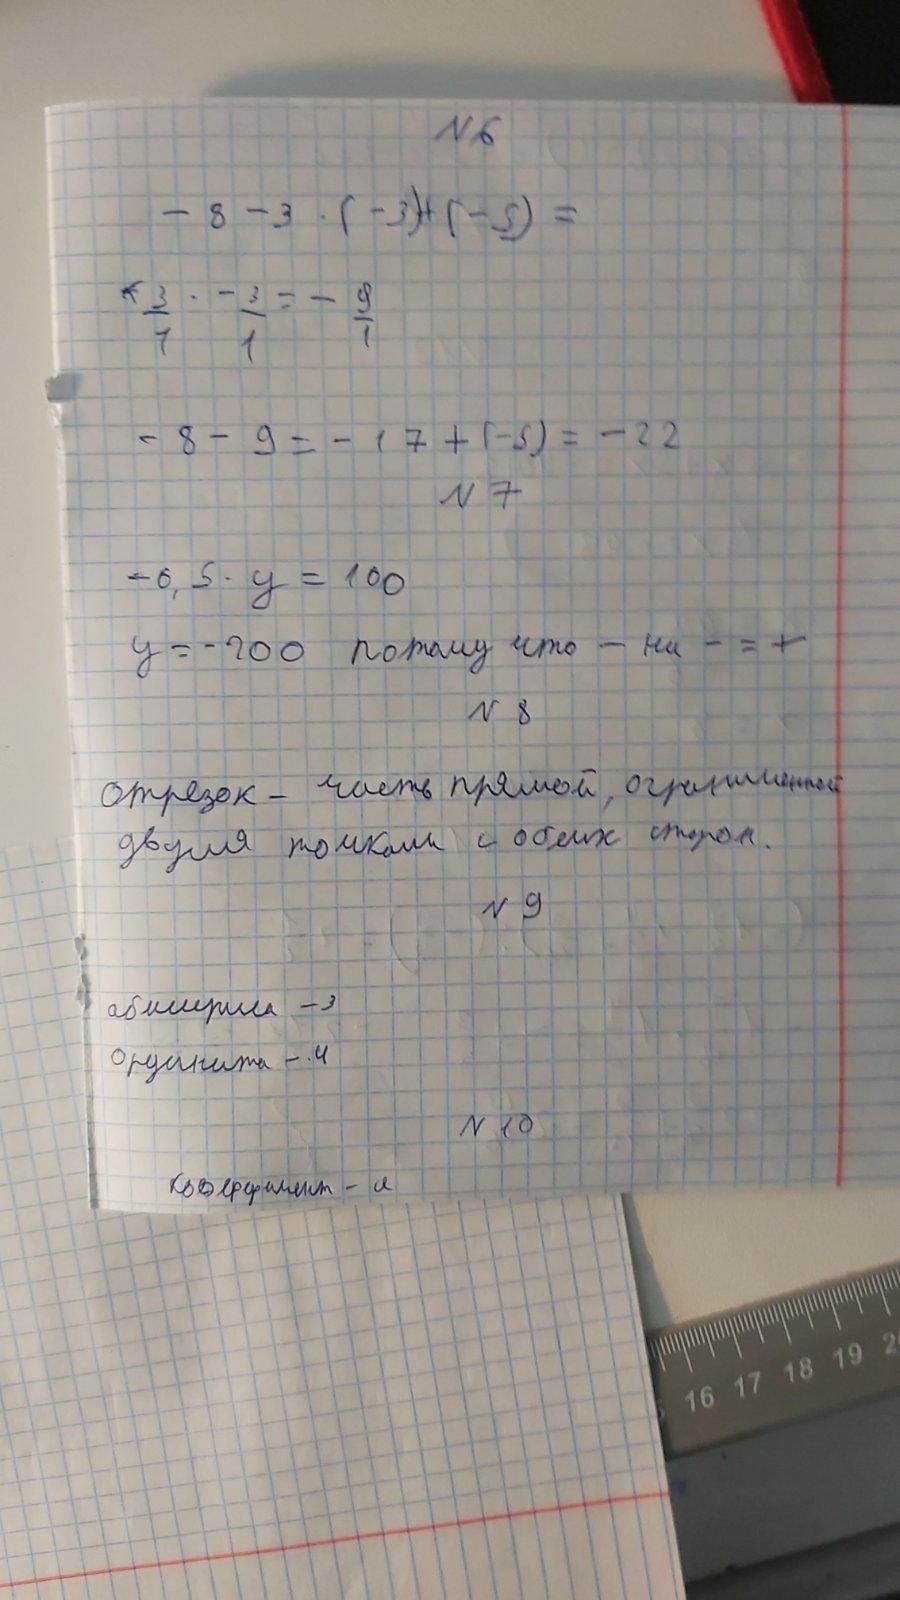 N 6
- 8 - 3 · (-3) + (-5) =
3/1 · - 3/1 = - 9/1
- 8 - 9 = - 17 + (-5) = - 22
N 7
- 0,5 · y = 100
y = - 200 потому что - на - = +
N 8
отрезок - часть прямой, ограниченной
двумя точками с обеих сторон.
N 9
абисцисса - 3
ордината - 4
N 10
16 17 18 19